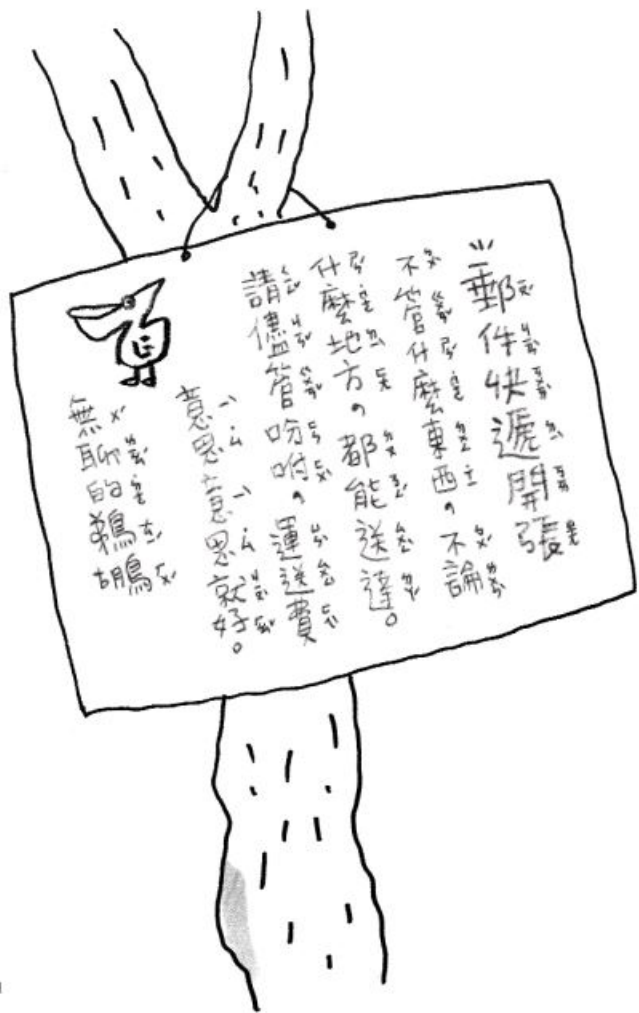 郵件快遞開張
不管什麼東西，不論
什麼地方，都能送達。
請儘管吩咐，運送費
意思意思就好。
無聊的鵜鶘